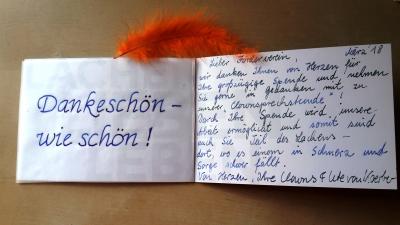 Dankeschön -
wie schön !
März 18
Lieber Förderverein,
wir danken Ihnen von Herzen für
Ihre großzügige Spende und nehmen
Sie gerne in Gedanken mit zu
unserer Clownsprechstunde !
Durch Ihre Spende wird unsere
Arbeit ermöglicht und somit sind
auch Sie Teil des Lachens -
dort, wo es einem in Schmerz und
Sorge schwer fällt.
Von Herzen, Ihre Clowns & Ute von